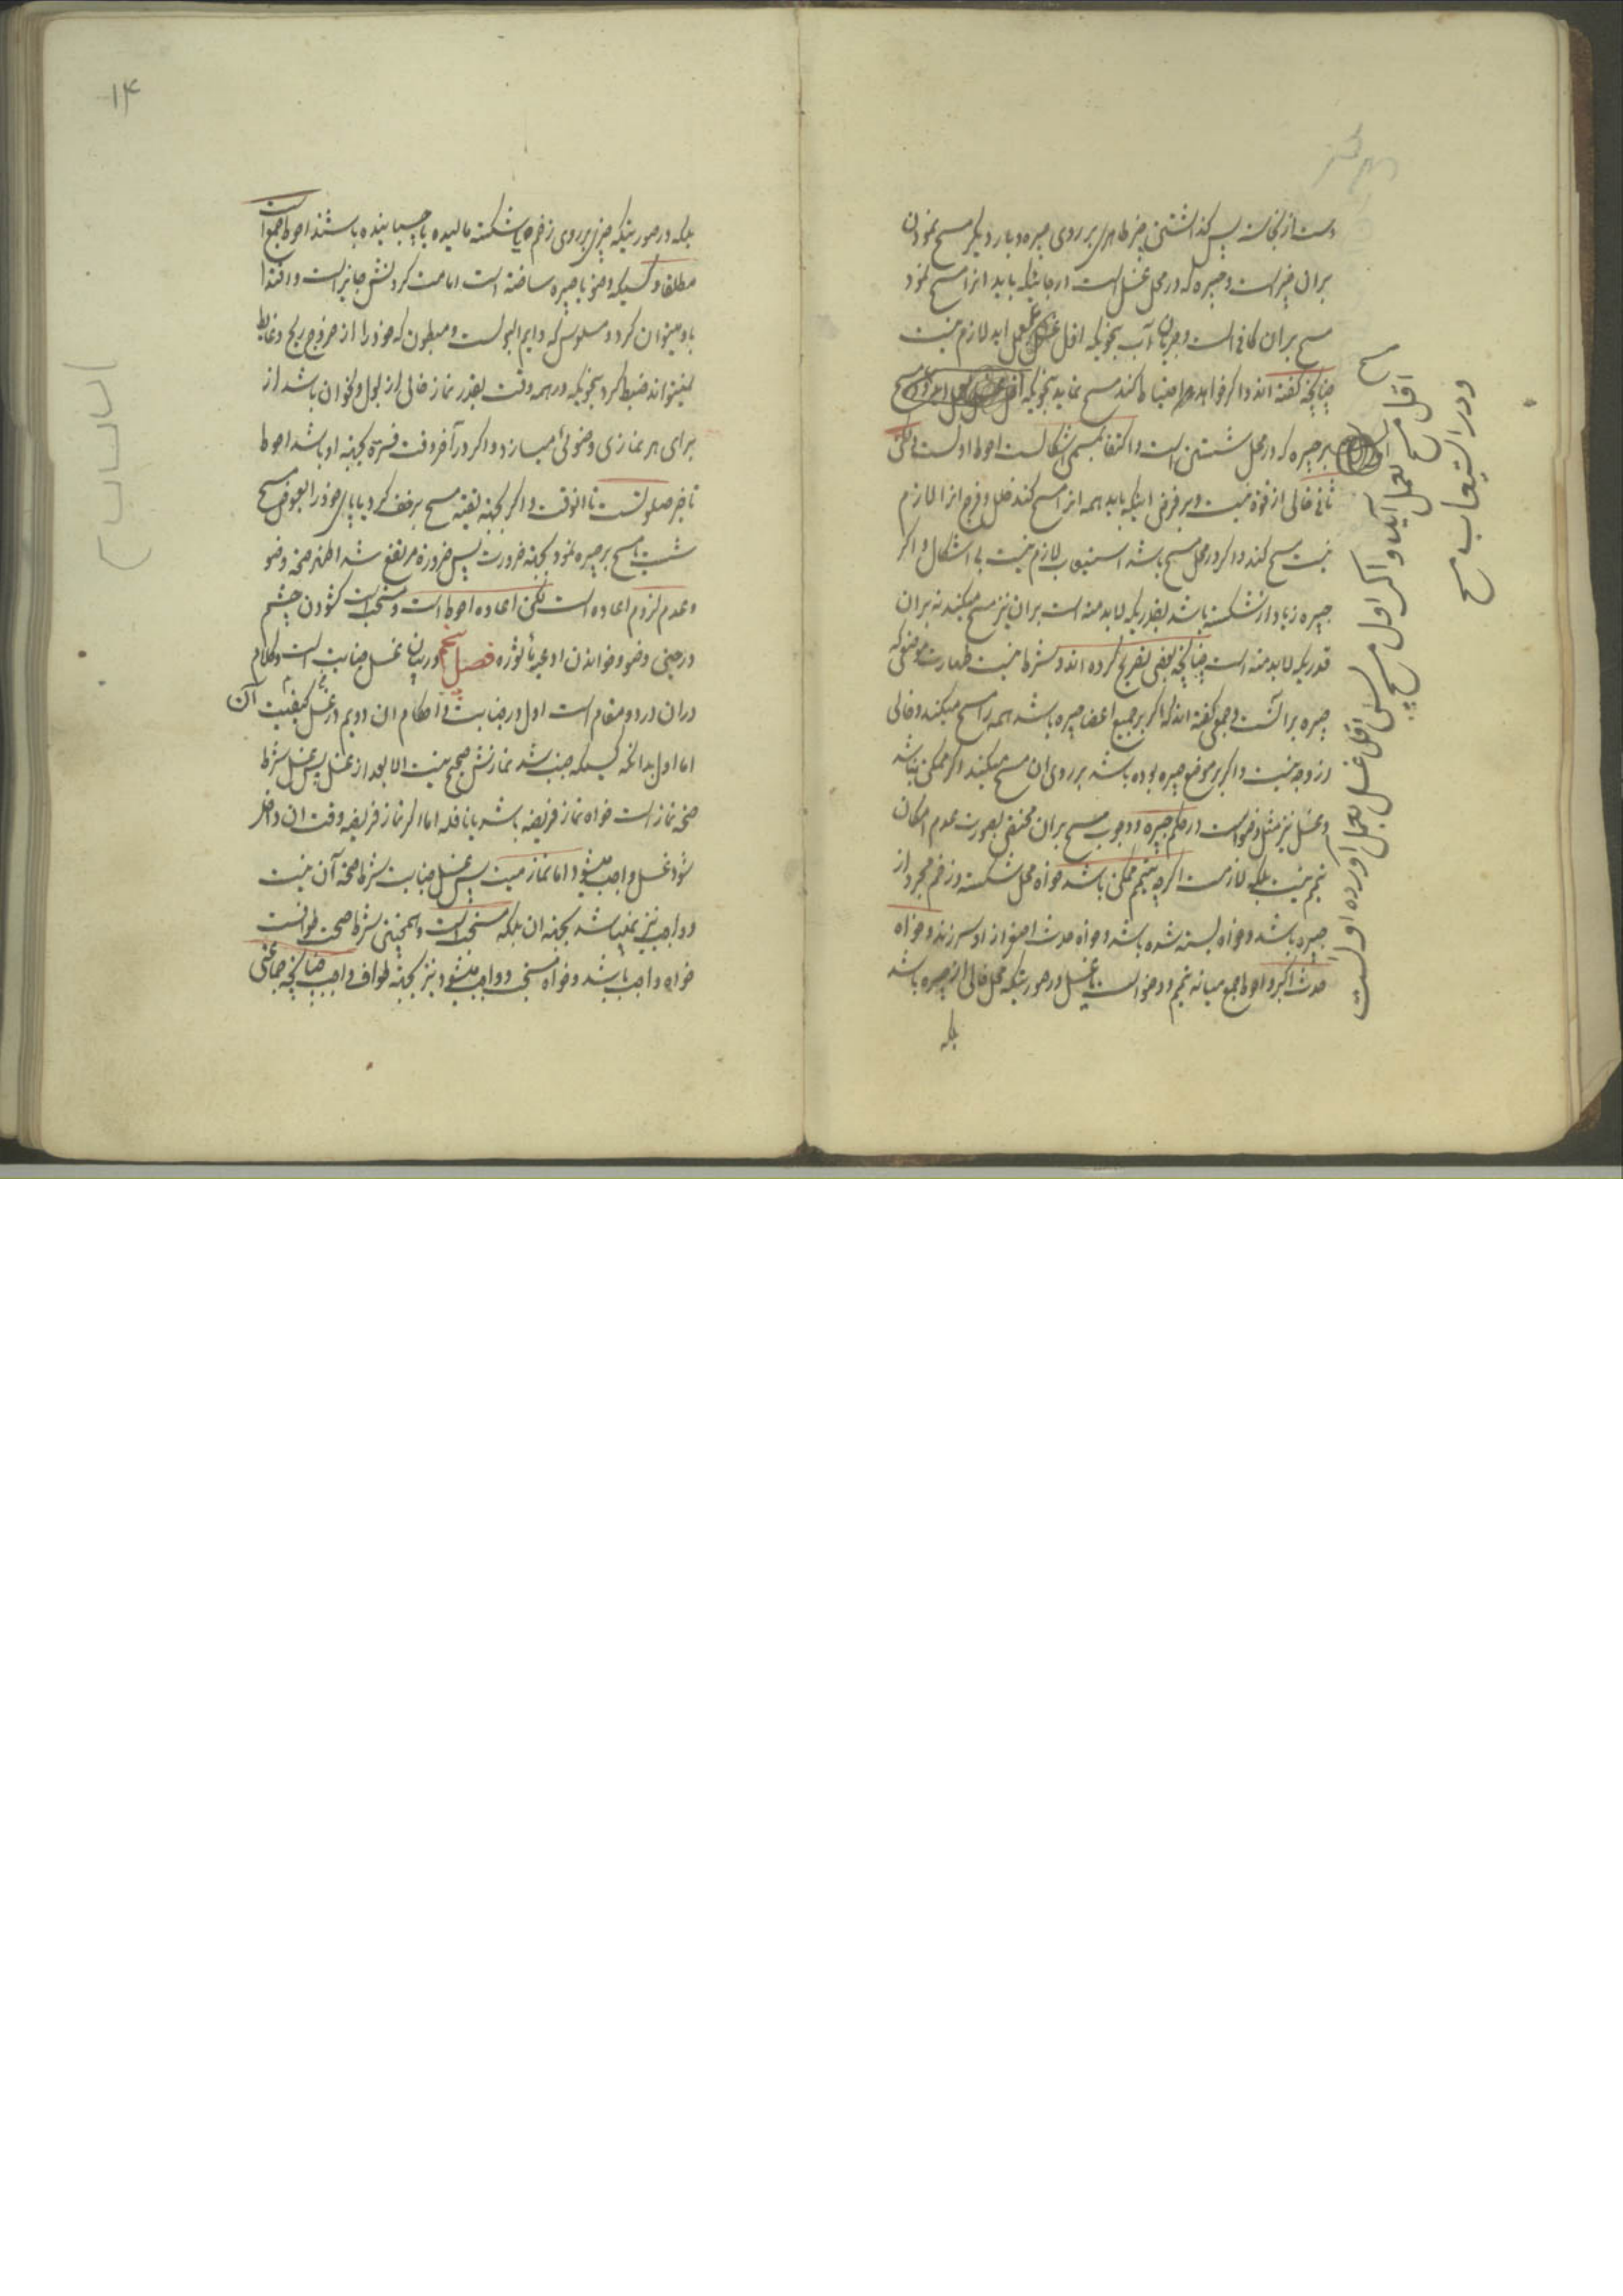 دست از نجاست پس گذاشتن چیز طاهری بر روی جبیره و بار دیگر مسح نمودن
بران چیز است و جبیره که در محل غسل است در جائیکه باید انرا مسح نمود
مسح بران کافی است و جریان آب بنحویکه اقل غسل بعمل اید لازم نیست
چنانچه گفته اند و اگر خواهد احتیاط کند مسح نماید بنحویکه
بر جبیره که در محل شستن است و اکتفا بمسمی اشکالست احوط اولست لکن
ثانی خالی از قوة نیست و بر فرض اینکه باید همه انرا مسح کند خلل و فرج انرا لازم
نیست مسح کند و اگر در محل مسح باشد استیعاب لازم نیست بی اشکال و اگر
جبیره زیاد از شکسته باشد بقدریکه لابد منه است بران نیز مسح میکند نه بران
قدریکه لابد منه است چنانچه بعضی تصریح کرده اند و شرط نیست طهارت موضعی که
جبیره برانست و جمعی گفته اند که اگر بر جمیع اعضا جبیره باشد همه را مسح میکند و خالی
از وجه نیست و اگر بر موضع جبیره بوده باشد بر روی ان مسح میکند اگر ممکن باشد
و غسل نیز مثل وضو است در حکم جبیره و وجوب مسح بران مختص بصورت عدم امکان
تیمم نیست بلکه لازمست اگرچه تیمم ممکن باشد خواه محل شکسته و زخم مجرد از
جبیره باشد و خواه بسته شده باشد و خواه حدث اصغر از او سر زند و خواه
حدث اکبر و احوط جمع میانه تیمم و وضو است یا غسل در صورتیکه محل خالی از جبیره باشد
بلکه
مسح
اقل مسح بعمل آید و اگر اول مسح پس اقل غسل بعمل اورده اولست
و در استیعاب مسح
۱۴
بلکه در صورتیکه چیزی بر روی زخم یا شکسته مالیده یا چسبانیده باشند احوط جمع است
مطلقا و کسیکه وضو با جبیره ساخته است امامت کردنش جایز است و اقتدا
باو میتوان کرد و مسلوس که دایم البولست و مبطون که خود را از خروج ریح و غایط
نمیتواند ضبط کرد بنحویکه در همه وقت بقدر نماز خالی از بول و نحو ان باشد از
برای هر نمازی وضوئی میسازد و اگر در آخر وقت فترة بجهة او باشد احوط
تاخیر صلوتست تا انوقت و اگر بجهة تقیه مسح بر خف کرد یا پای خود را بعوض مسح
شست یا مسح بر جبیره نمود بجهة ضرورت پس ضرورة مرتفع شد اظهر صحة وضو
و عدم لزوم اعاده است لکن اعاده احوط است و مستحب است گشودن چشم
در حین وضو و خواندن ادعیه مأثوره فصل پنجم در بیان غسل جنابت است و کلام
دران در دو مقام است اول در جنابت و احکام ان دویم در غسل و کیفیت آن
اما اول بدانکه کسیکه جنب شد نمازش صحیح نیست الا بعد از غسل پس غسل شرط
صحة نماز است خواه نماز فریضه باشد یا نافله اما اگر نماز فریضه وقت ان داخل
شود غسل واجب میشود اما نماز میت پس غسل جنابت شرط صحة آن نیست
و واجب نیز نمیباشد بجهة ان بلکه مستحب است و همچنین شرط صحت طوافست
خواه واجب باشد و خواه مستحب و واجب میشود نیز بجهة طواف واجب چنانچه جماعتی